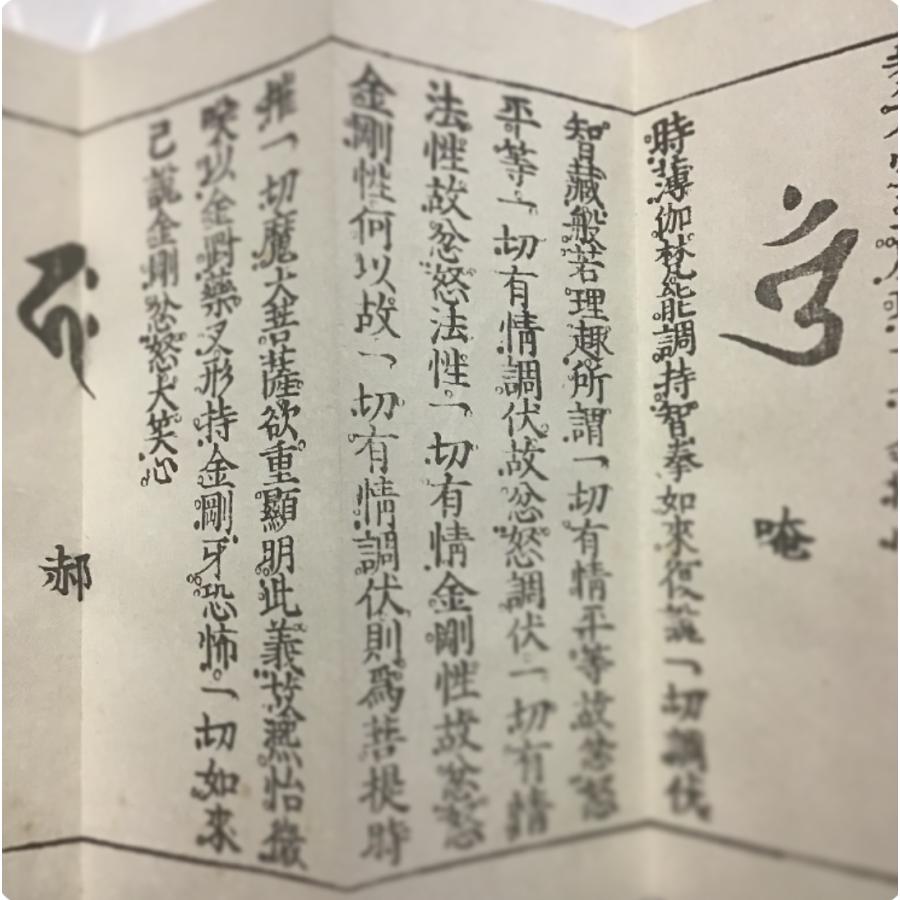 唵
時薄伽梵能調持智拳如來復說一切調伏
智藏般若理趣所謂一切有情平等故忿怒
平等一切有情調伏故忿怒調伏一切有情
法性故忿怒法性一切有情金剛性故忿怒
金剛性何以故一切有情調伏則爲菩提時
摧一切魔大菩薩欲重顯明此義故熈怡微
咲以金剛藥叉形持金剛牙恐怖一切如來
已說金剛忿怒大笑心
郝